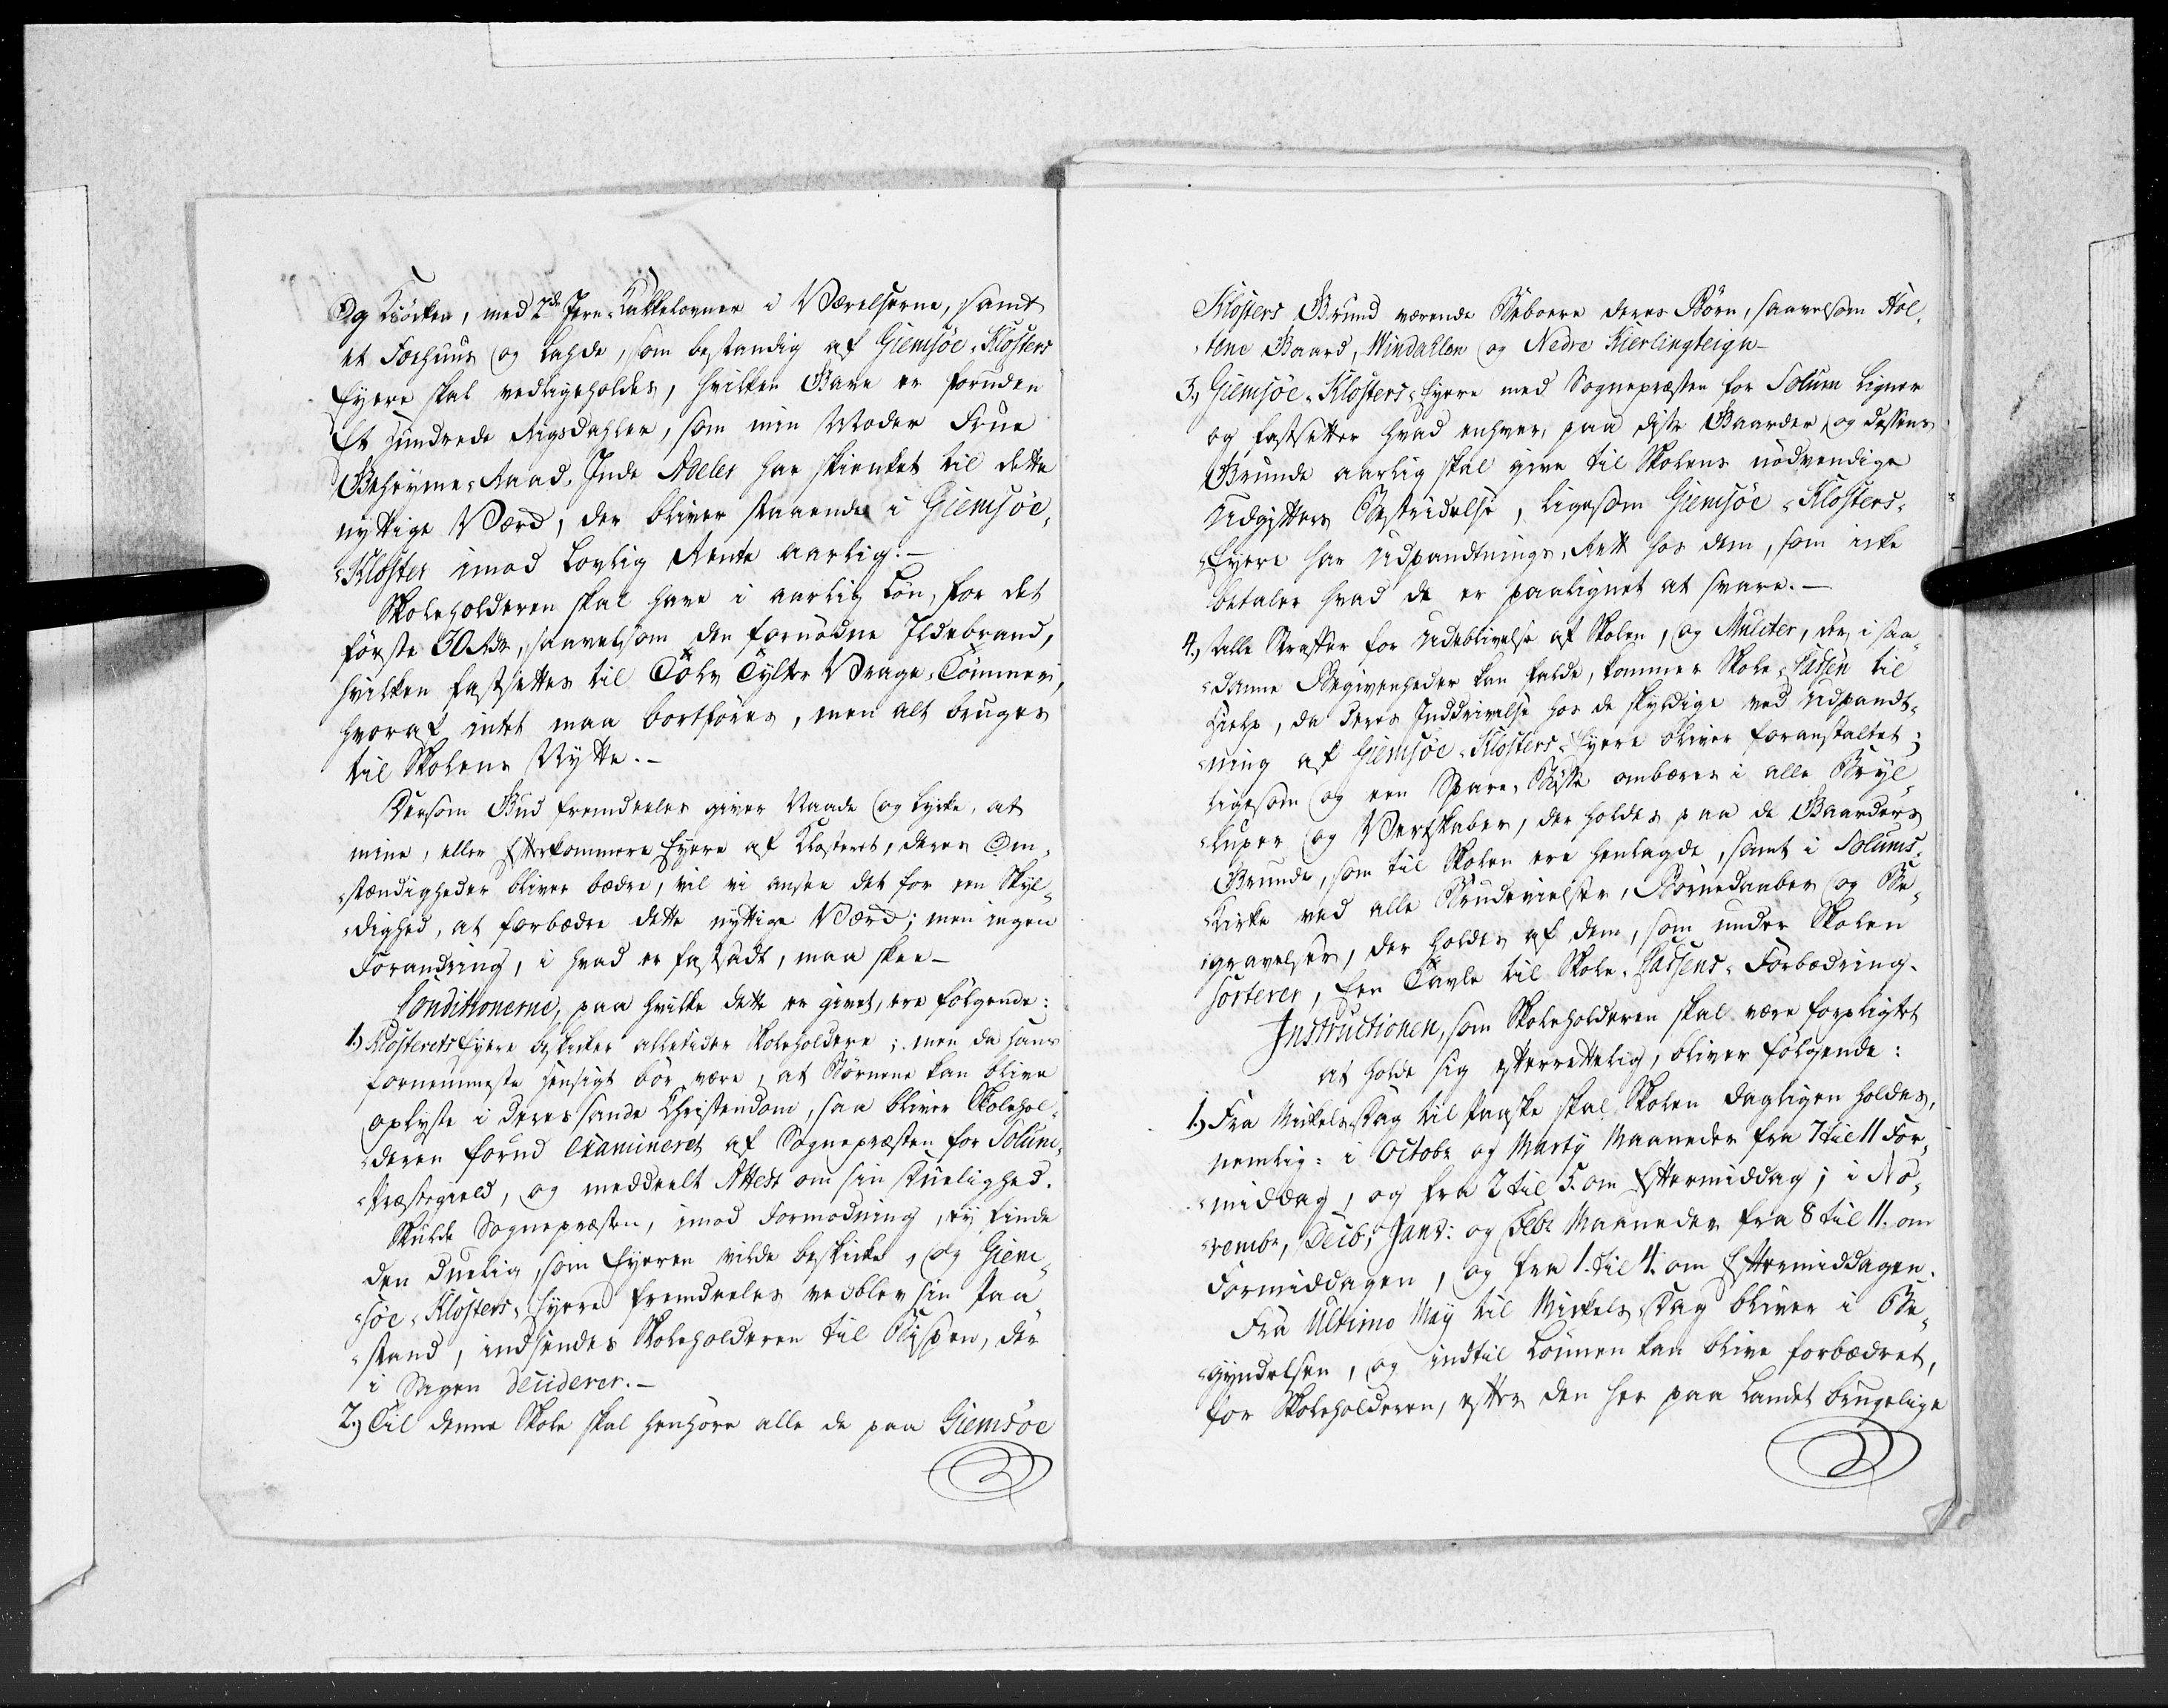 Og Kiöcken, med 2de Jern-Kakkelovner i Værelserne, samt
et Foehuus og Lahde, som bestandig af Giemsöe-Klosters
Eyere skal vedligeholdes, hvilken Gave er foruden
Et Hundrede Rigsdahler, som min Moder Frue
Geheyme-Raad-Inde Adeler har skienket til dette
nyttige Værd, der bliver staaende i Giemsöe-
-Kloster imod lovlig Rente aarlig.-
Skoleholderen skal have i aarlig Lön, for det
förste 30 Rdr, saavelsom den fornödne Ildebrand,
hvilken fastsettes til Tolv Tylter Vrage-Tömmer,
hvoraf intet maa bortföres, men alt bruges
til Skolens Nytte.-
Dersom Gud fremdeeles giver Naade og Lycke, at
mine, eller Efterkommere Eyere af Klosteret, deres Om-
-stændigheder bliver bædre, vil vi ansee det for een Skyl-
-dighed, at forbædre dette nyttige Værd; men ingen
Forandring, i hvad er fastsadt, maa skee-
Conditionerne, paa hvilke dette er givet, ere fölgende:
1.) Klosterets Eyere beskicker alletider Skoleholdere; men da hans
fornemmeste Hensigt bör være, at Börnene kan blive
oplyste i deres sande Christendom, saa bliver Skolehol-
-deren forud examineret af Sognepræsten for Solum-
-Præstegield, og meddeelt Attest om sin Duelighed.
Skulde Sognepræsten, imod Formodning, ey finde
den duelig, som Eyeren vilde beskicke, og Giem-
-söe-Klosters-Eyere fremdeeles vedblev sin Paa-
-stand, indsendes Skoleholderen til Bispen, der
i Sagen deciderer.-
2.) Til denne Skole skal henhöre alle de paa Giemsöe
Klosters Grund værende Beboere deres Börn, saavelsom Hol-
-tene Gaard, Mindahlen og Nedre Kierlingteign-
3.) Giemsöe-Klosters-Eyere med Sognepræsten for Solum ligner
og fastsetter hvad enhver, paa disse Gaarder og dessens
Grunde aarlig skal give til Skolens nödvendige
Udgifters Bestridelse, ligesom Giemsöe-Klosters-
-Eyere har Udpandtnings-Rett hos dem, som icke
betaler hvad de er paalignet at svare.-
4.) Alle Straffer for Udeblivelse af Skolen, og Mulcter, der i saa-
-danne Begivenheder kan falde, kommer Skole-Cassen til
Hielp, da deres Inddrivelse hos de skyldige ved Udpandt-
-ning af Giemsöe-Klosters-Eyere bliver foranstaltet;
ligesom og een Spare-Bösse ombæres i alle Bryl-
-luper og Vertskaber, der holdes paa de Gaarders
Grunde, som til Skolen ere henlagde, samt i Solums-
-Kirke ved alle Brudevielser, Börnedaaber og Be-
-gravelser, der holdes af dem, som under Skolen
sorterer, Een Tavle til Skole-Cassens-Forbædring.
Instructionen, som Skoleholderen skal være forpligtet
at holde sig efterrettelig, bliver fölgende:
1.) Fra Mickels-Dag til Paaske skal Skolen dagligen holdes,
nemlig: i Octobr og Marty Maaneder fra 7 til 11 For-
-middag, og fra 2 til 5. om Eftermiddag; i No-
-vembr, Decbr, Janv: og Febr Maaneder fra 8 til 11. om
Formiddagen, og fra 1. til 4. om Eftermiddagen.
Fra Ultimo May til Mickels-Dag bliver i Be-
-gyndelsen, og indtil Lönnen kan blive forbædret,
for Skoleholderen, efter den her paa Landet brugelige